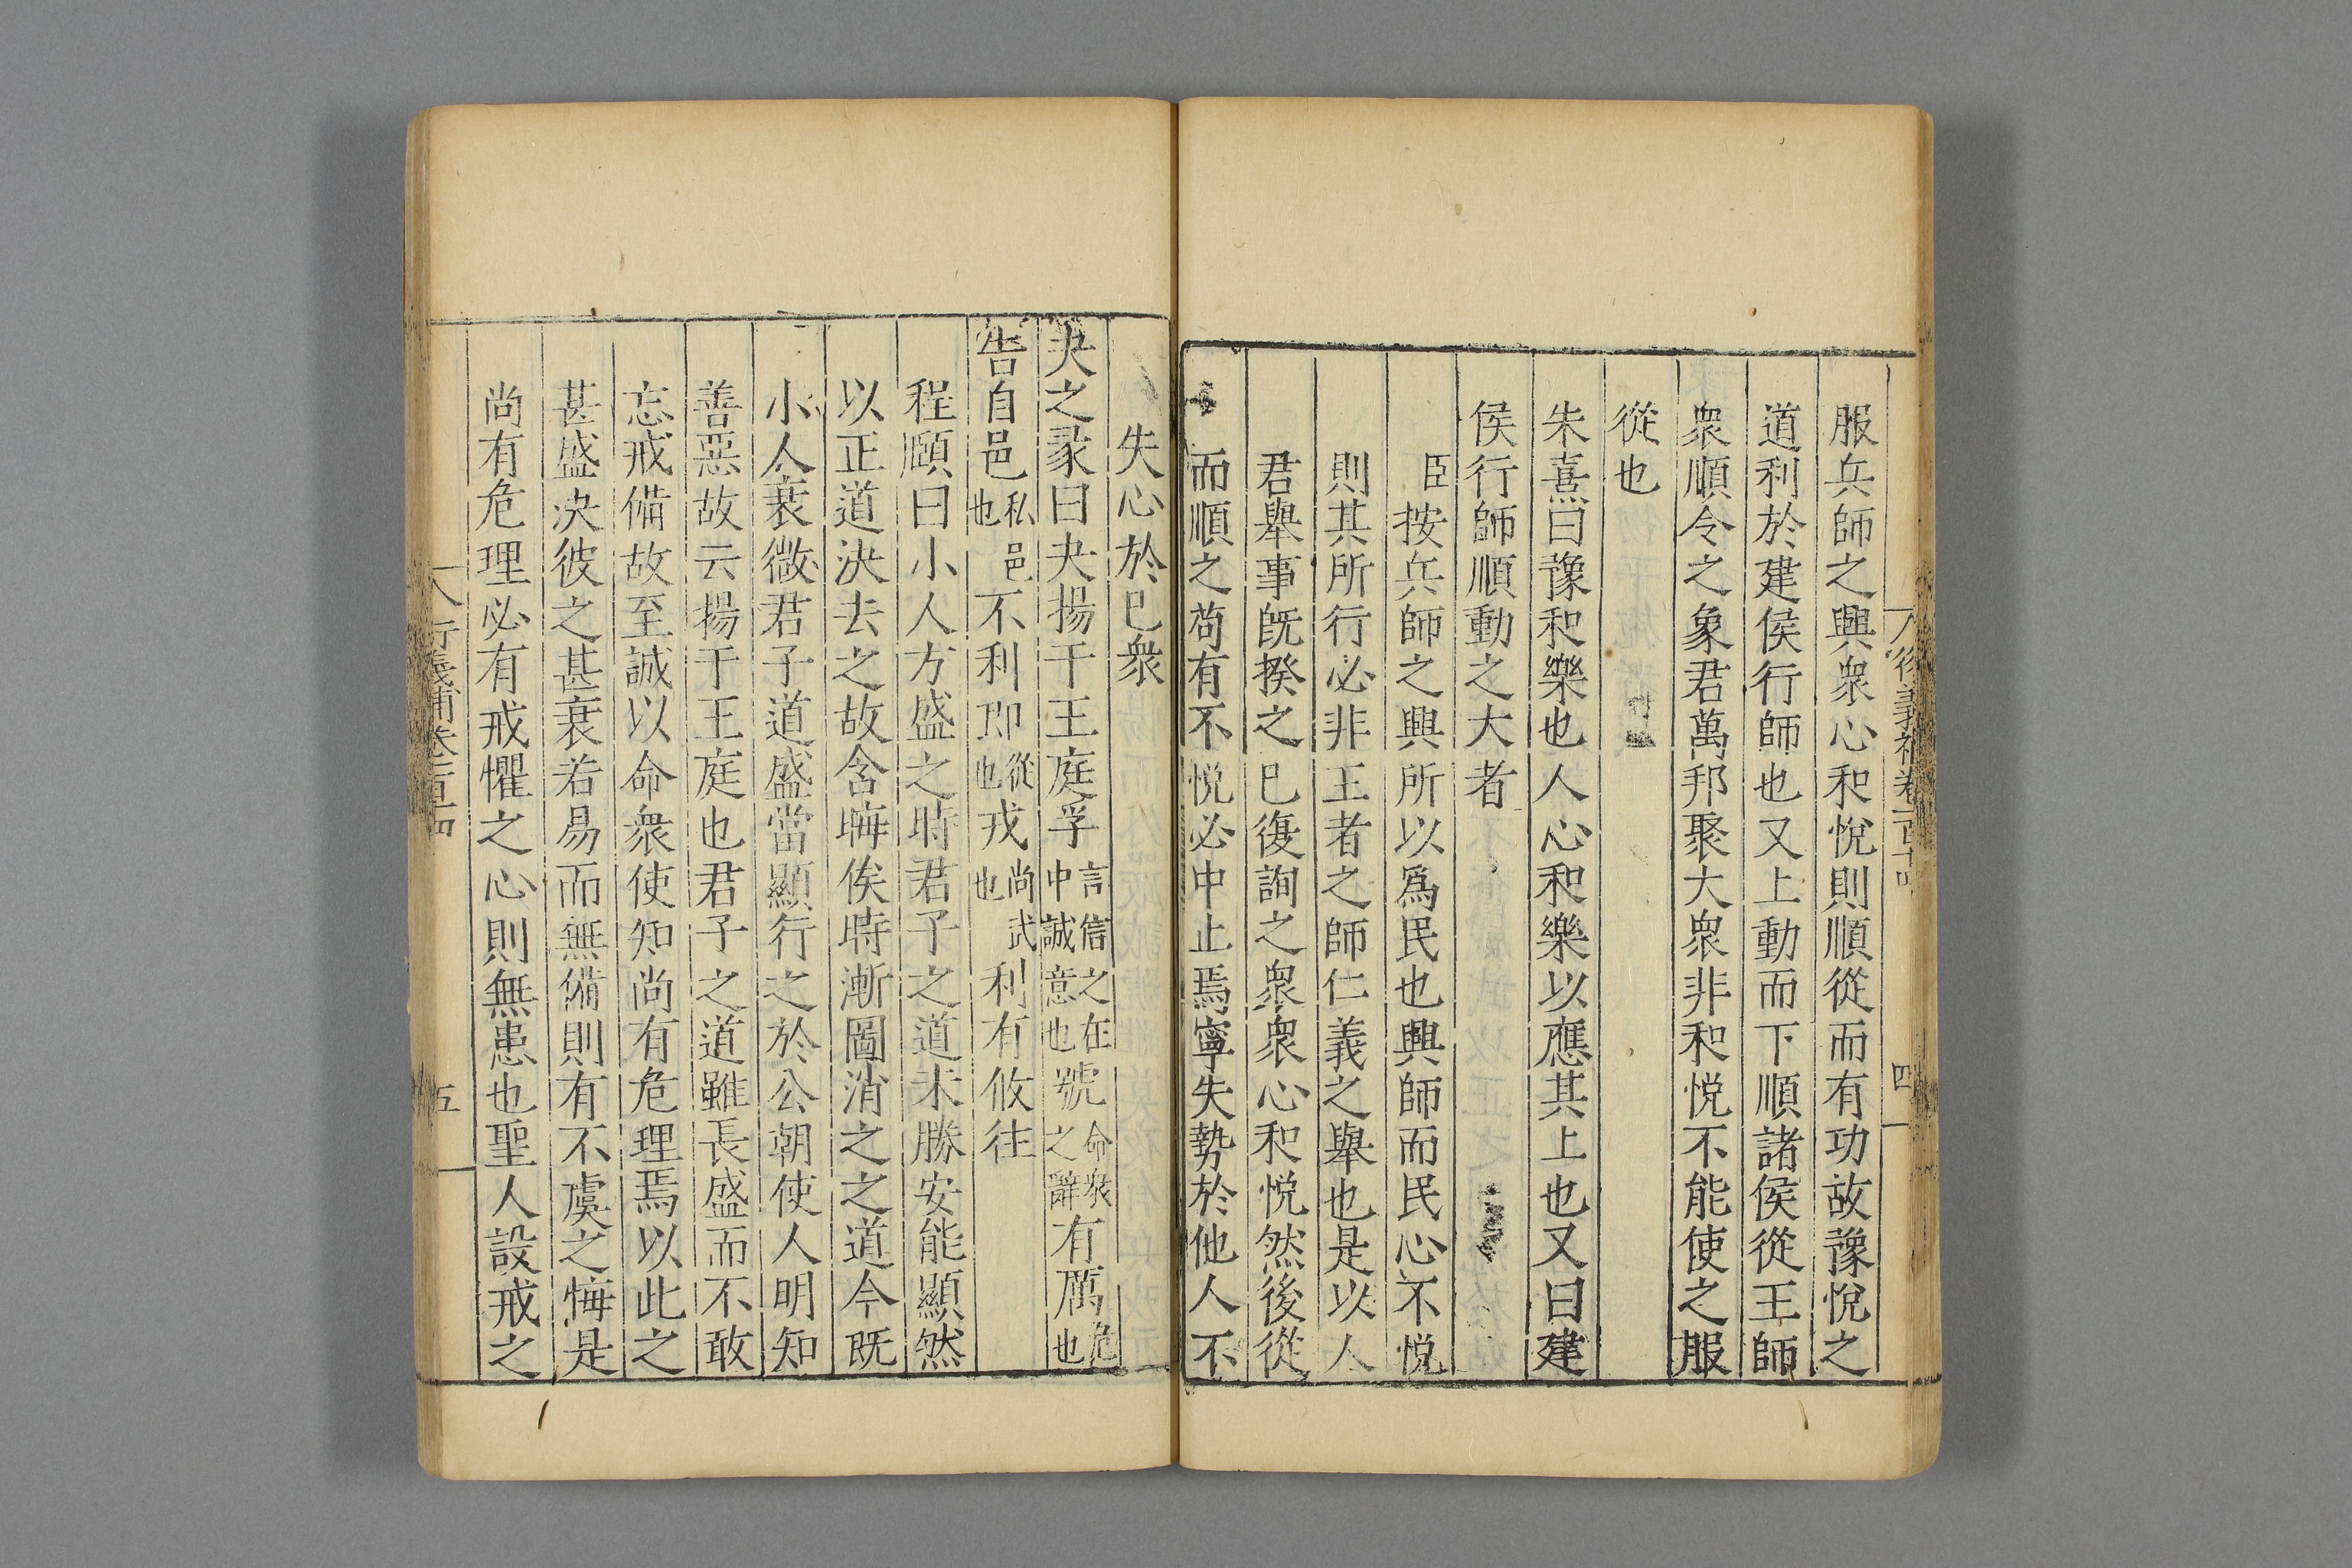 服兵師之興衆心和悅則順從而有功故豫悅之
道利於建侯行師也又上動而下順諸侯從王師
衆順令之象君萬邦聚大衆非和悅不能使之服
從也
朱熹曰豫和樂也人心和樂以應其上也又曰建
侯行師順動之大者
臣按兵師之興所以爲民也興師而民心不悅
則其所行必非王者之師仁義之舉也是以人
君舉事旣揆之已復詢之衆衆心和悅然後從
而順之苟有不悅必中止焉寧失勢於他人不
失心於已衆
夬之彖曰夬揚于王庭孚言信之在中誠意也號命衆之辭有厲危也
告自邑私邑也不利即從也戎尚武也利有攸往
程頤曰小人方盛之時君子之道未勝安能顯然
以正道決去之故含晦俟時漸圖消之之道今旣
小人衰微君子道盛當顯行之於公朝使人明知
善惡故云揚于王庭也君子之道雖長盛而不敢
忘戒備故至誠以命衆使知尚有危理焉以此之
甚盛決彼之甚衰若易而無備則有不虞之悔是
尚有危理必有戒懼之心則無患也聖人設戒之
五